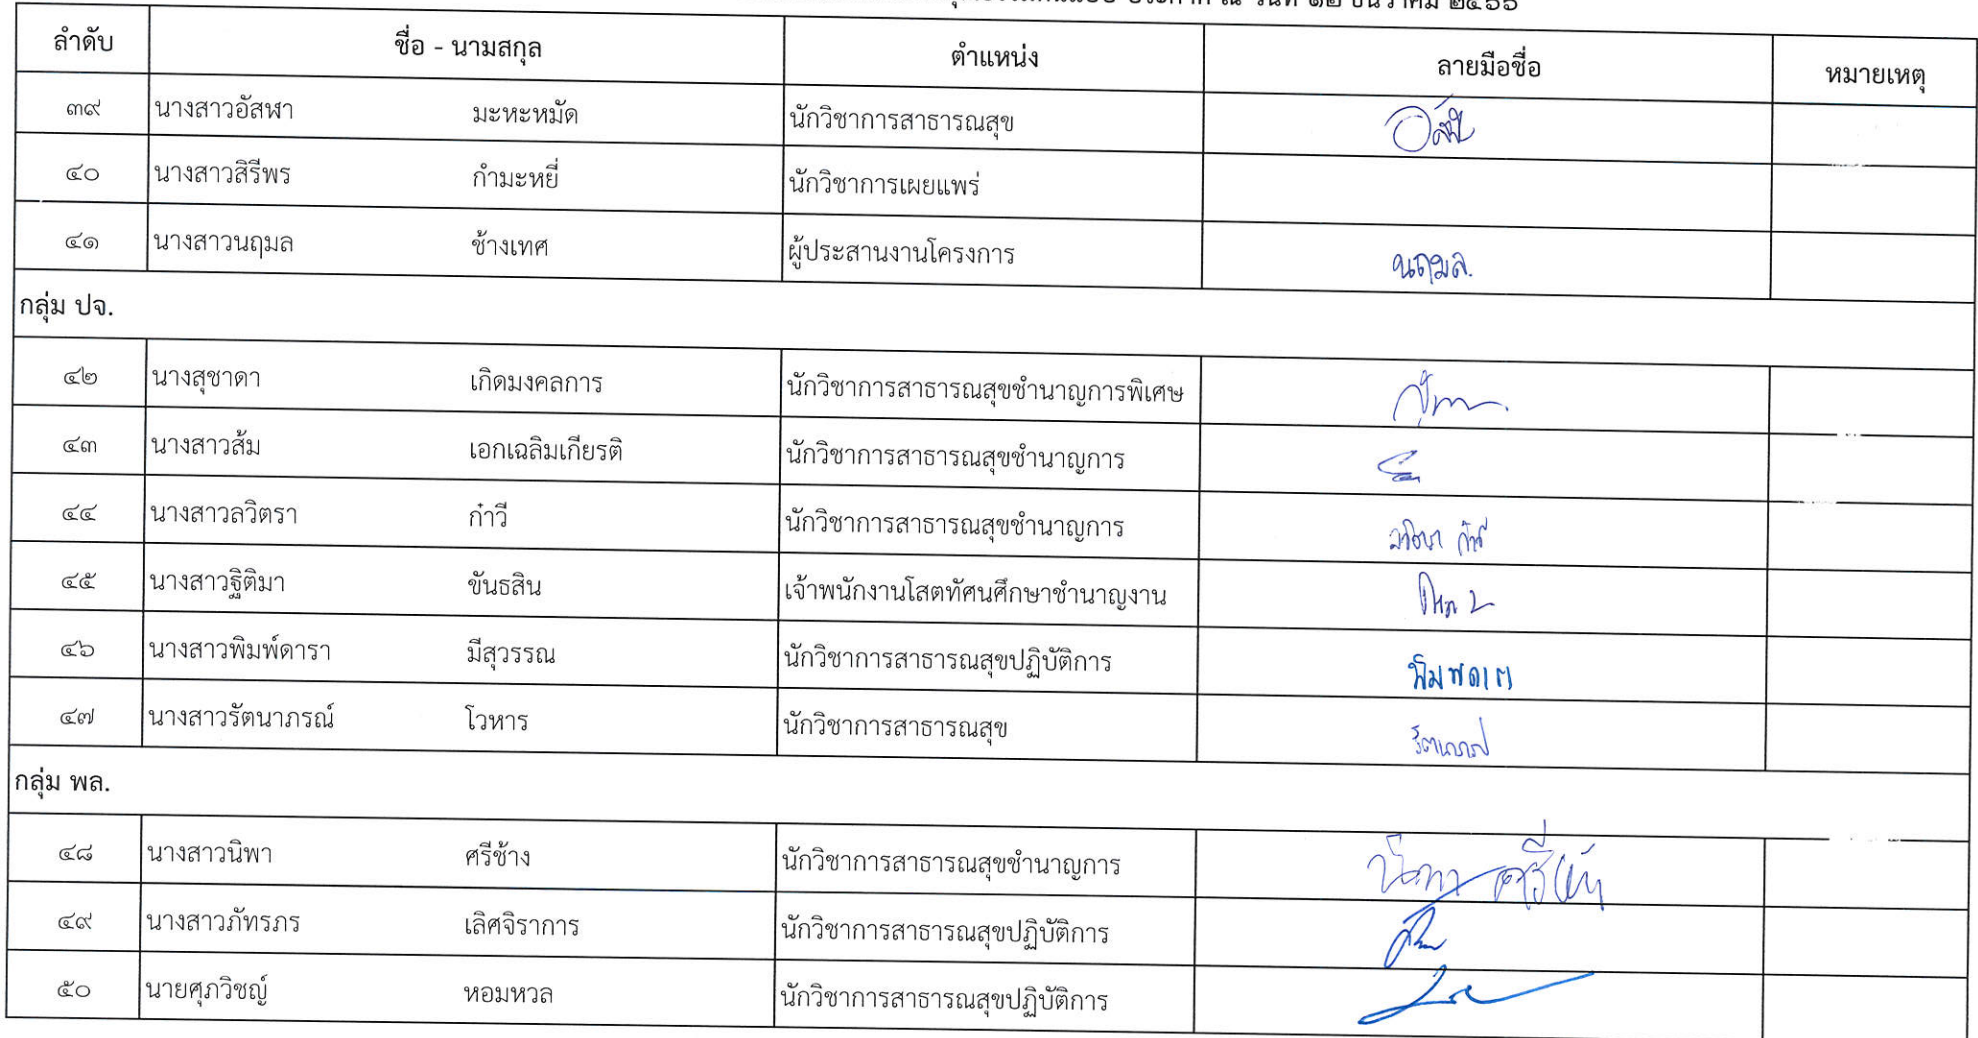 ประกาศ ณ วันที่ ๑๒ ธันวาคม ๒๕๖๖
ลำดับ ชื่อ - นามสกุล ตำแหน่ง ลายมือชื่อ หมายเหตุ
๓๙ นางสาวอัสฬา มะหะหมัด นักวิชาการสาธารณสุข
๔๐ นางสาวสิรีพร กำมะหยี่ นักวิชาการเผยแพร่
๔๑ นางสาวนฤมล ช้างเทศ ผู้ประสานงานโครงการ นฤมล.
กลุ่ม ปจ.
๔๒ นางสุชาดา เกิดมงคลการ นักวิชาการสาธารณสุขชำนาญการพิเศษ
๔๓ นางสาวส้ม เอกเฉลิมเกียรติ นักวิชาการสาธารณสุขชำนาญการ
๔๔ นางสาวลวิตรา ก๋าวี นักวิชาการสาธารณสุขชำนาญการ ลวิตรา ก๋าวี
๔๕ นางสาวฐิติมา ขันธสิน เจ้าพนักงานโสตทัศนศึกษาชำนาญงาน
๔๖ นางสาวพิมพ์ดารา มีสุวรรณ นักวิชาการสาธารณสุขปฏิบัติการ พิมพ์ดารา
๔๗ นางสาวรัตนาภรณ์ โวหาร นักวิชาการสาธารณสุข รัตนาภรณ์
กลุ่ม พล.
๔๘ นางสาวนิพา ศรีช้าง นักวิชาการสาธารณสุขชำนาญการ นิพา ศรีช้าง
๔๙ นางสาวภัทรภร เลิศจิราการ นักวิชาการสาธารณสุขปฏิบัติการ
๕๐ นายศุภวิชญ์ หอมหวล นักวิชาการสาธารณสุขปฏิบัติการ